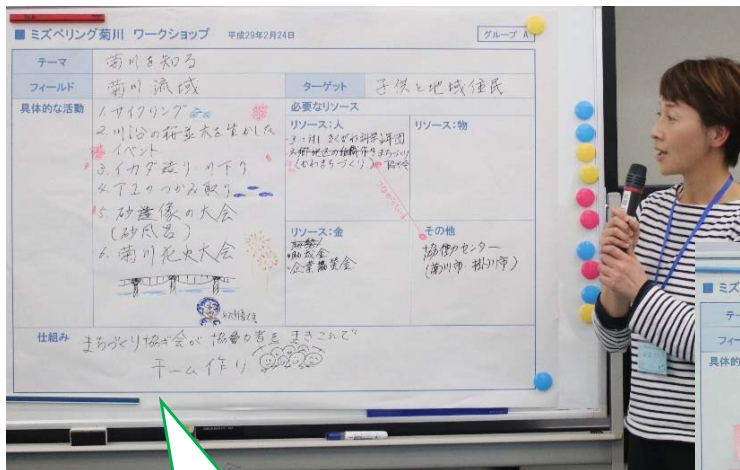 ■ ミズベリング菊川 ワークショップ 平成29年2月24日 グループ A
テーマ 菊川を知る
フィールド 菊川流域 ターゲット 子供と地域住民
具体的な活動
1. サイクリング
2. 川沿の桜並木を生かした
イベント
3. イカダ造り・川下り
4. アユのつかみ取り
5. 砂造像の大会
(砂風呂)
6. 菊川花火大会
必要なリソース
リソース:人
(かわまちづくり)
リソース:物
リソース:金
助成金
企業協賛金
その他
協働センター
(菊川市 掛川市)
仕組み まちづくり協ギ会が協働力者をまきこんで
チーム作り
■ ミズ
テー
フィー
具体的